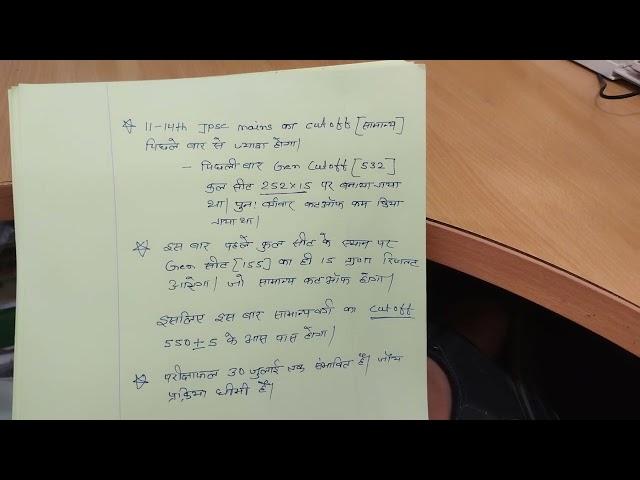 ☆ 11-14th Jpsc mains का cutoff [सामान्य]
पिछले बार से ज्यादा होगा।
- पिछली बार Gen cutoff [532]
कुल सीट 252×15 पर बनाया गया
था। पुनः वर्गवार कटऑफ कम किया
गया था।
☆ इस बार पहले कुल सीट के स्थान पर
Gen सीट [155] का ही 15 गुणा रिजल्ट
आएगा। जो सामान्य कटऑफ होगा।
इसलिए इस बार सामान्य वर्ग का cutoff
550±5 के आस पास होगा।
☆ परीक्षाफल 30 जुलाई तक संभावित है। जाँच
प्रक्रिया धीमी है।